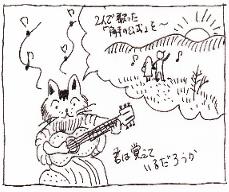 2人で歌った
「解の公式」を〜
君は覚えて
いるだろうか